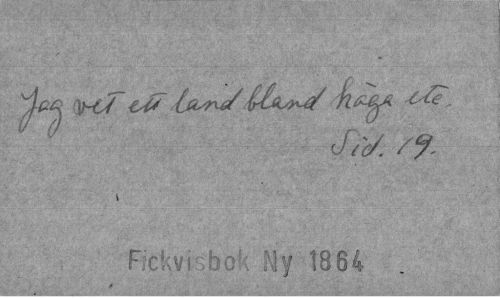 Jag vet ett land bland höga etc.
Sid. 19.
Fickvisbok Ny 1864